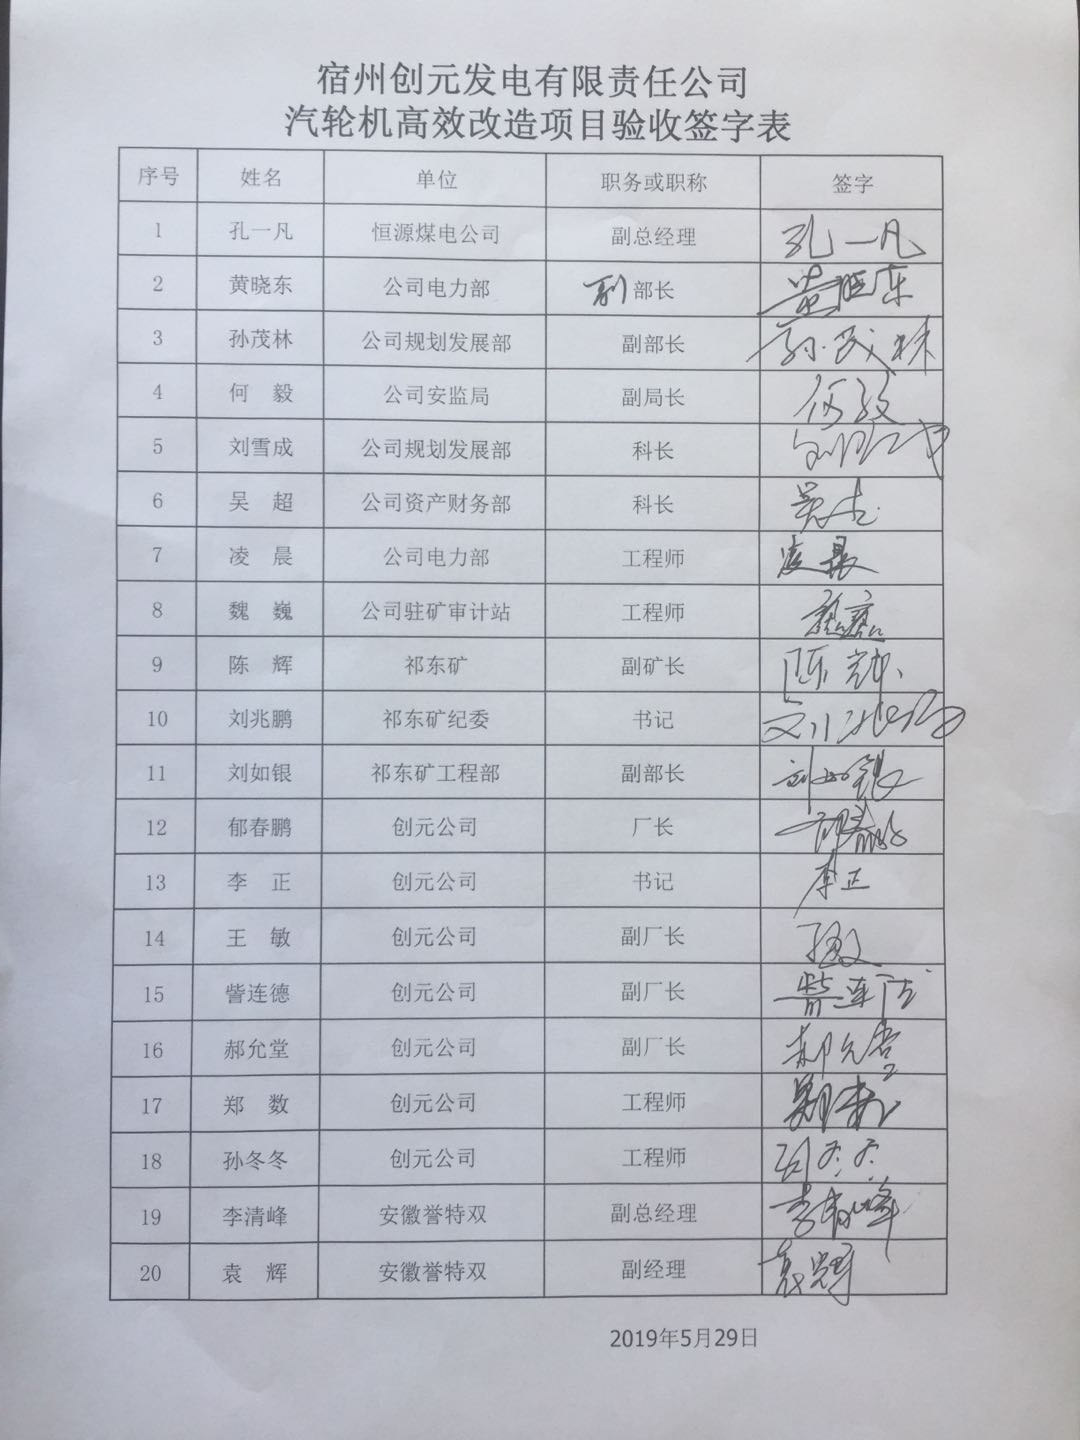 宿州创元发电有限责任公司
汽轮机高效改造项目验收签字表
序号 姓名 单位 职务或职称 签字
1 孔一凡 恒源煤电公司 副总经理 孔一凡
2 黄晓东 公司电力部 副部长 黄晓东
3 孙茂林 公司规划发展部 副部长 孙茂林
4 何 毅 公司安监局 副局长 何毅
5 刘雪成 公司规划发展部 科长
6 吴 超 公司资产财务部 科长 吴超
7 凌 晨 公司电力部 工程师 凌晨
8 魏 巍 公司驻矿审计站 工程师 魏巍
9 陈 辉 祁东矿 副矿长 陈辉
10 刘兆鹏 祁东矿纪委 书记 刘兆鹏
11 刘如银 祁东矿工程部 副部长 刘如银
12 郁春鹏 创元公司 厂长 郁春鹏
13 李 正 创元公司 书记 李正
14 王 敏 创元公司 副厂长 王敏
15 訾连德 创元公司 副厂长 訾连德
16 郝允堂 创元公司 副厂长 郝允堂
17 郑 数 创元公司 工程师 郑数
18 孙冬冬 创元公司 工程师 孙冬冬
19 李清峰 安徽誉特双 副总经理 李清峰
20 袁 辉 安徽誉特双 副经理 袁辉
2019年5月29日